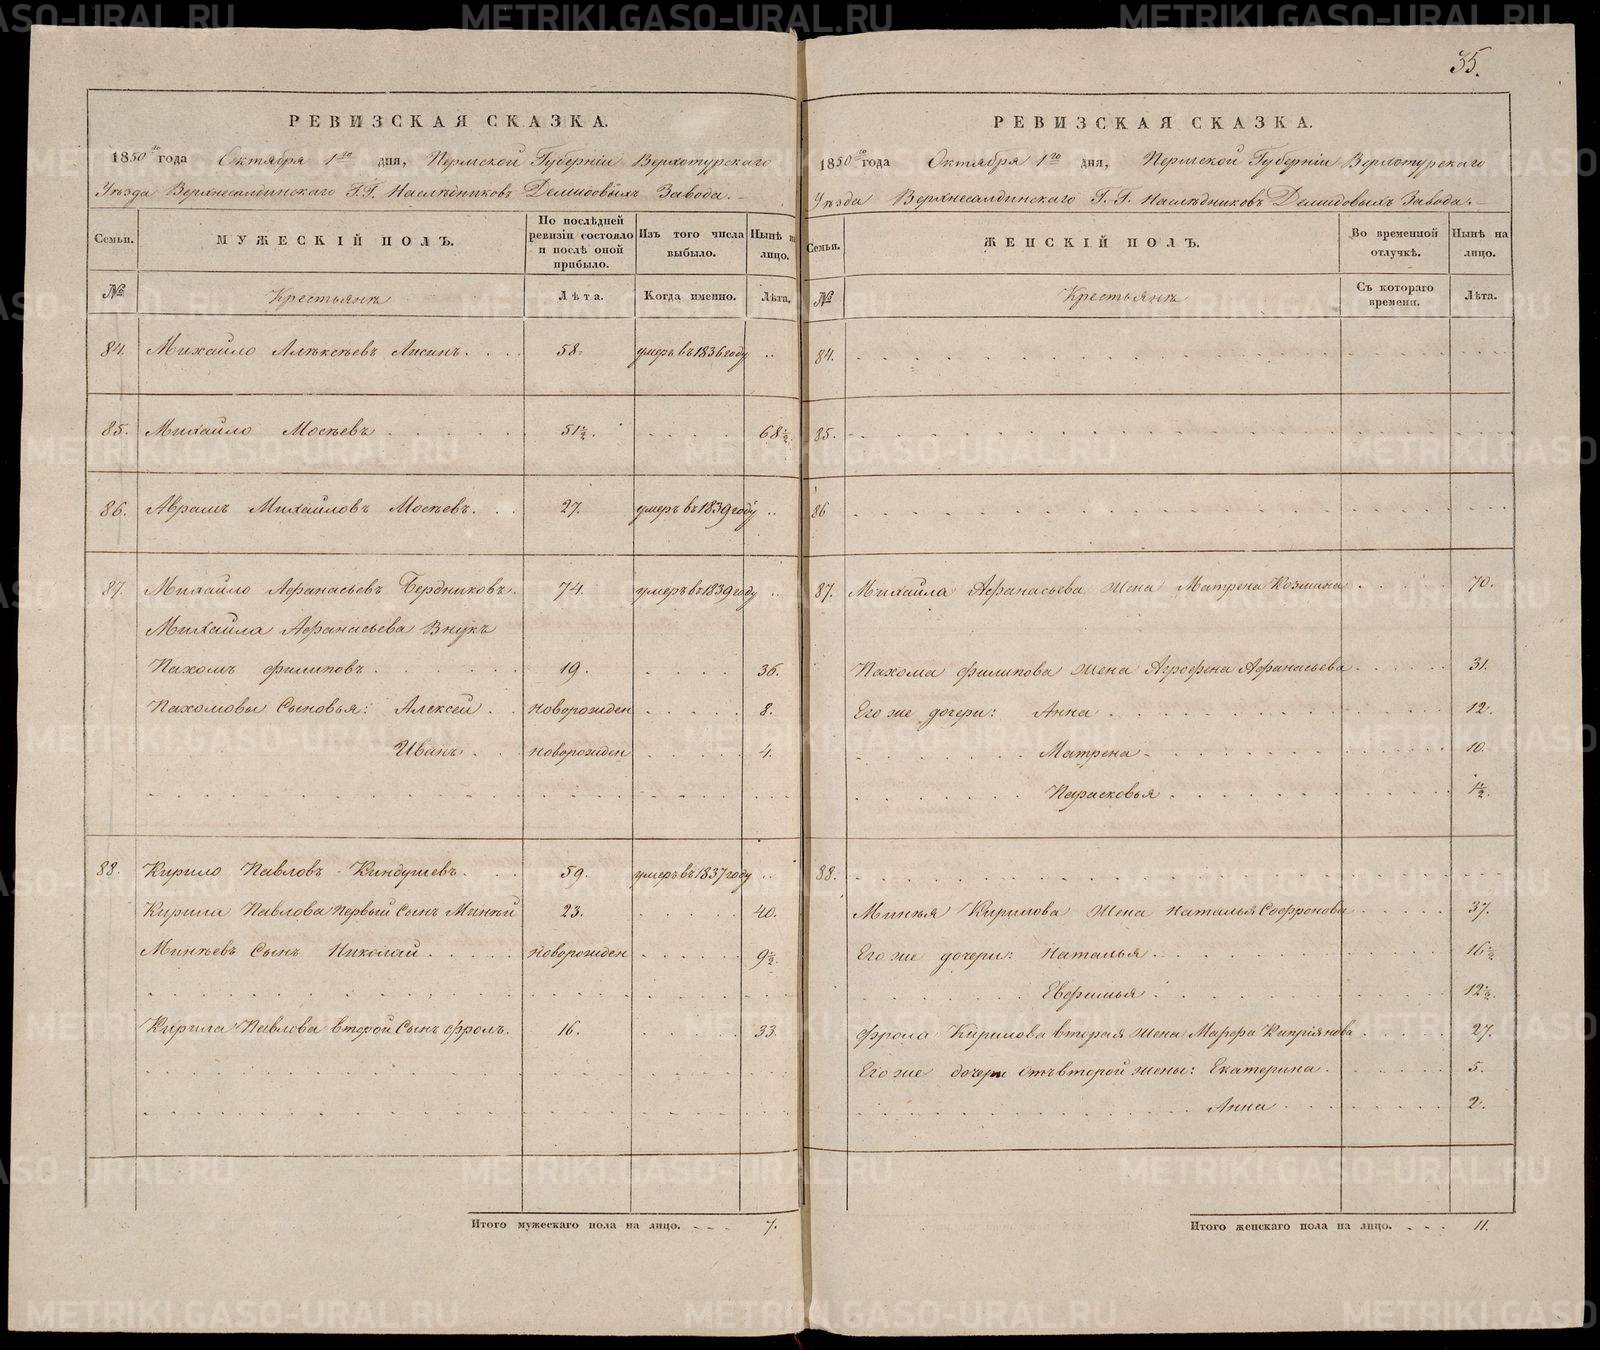 35.
РЕВИЗСКАЯ СКАЗКА.
1850го года Октября 1го дня, Пермской Губерніи Верхотурскаго
Уѣзда Верхнесалдинскаго Г.Г. Наслѣдниковъ Демидовыхъ Завода.
Семьи. МУЖЕСКІЙ ПОЛЪ. По послѣдней ревизіи состояло и послѣ оной прибыло. Изъ того числа выбыло. Нынѣ на лицо.
№ Крестьянъ Лѣта. Когда именно. Лѣта.
84. Михайло Алѣксѣевъ Лисинъ. 58. умеръ въ 1836 году
85. Михайло Мосѣевъ 51½. 68½.
86. Аврамъ Михайловъ Мосѣевъ. 27. умеръ въ 1839 году
87. Михайло Афанасьевъ Бердниковъ. 74. умеръ въ 1839 году
Михайла Афанасьева Внукъ
Пахомъ Филиповъ 19. 36.
Пахомовы Сыновья: Алексей новорожден 8.
Иванъ новорожден 4.
88. Кирило Павловъ Киндушевъ. 59. умеръ въ 1837 году
Кирила Павлова первый Сынъ Минѣй 23. 40.
Минѣевъ Сынъ Николай новорожден 9½.
Кирила Павлова второй Сынъ Фролъ. 16. 33.
Итого мужескаго пола на лицо. 7.
РЕВИЗСКАЯ СКАЗКА.
1850го года Октября 1го дня, Пермской Губерніи Верхотурскаго
Уѣзда Верхнесалдинскаго Г.Г. Наслѣдниковъ Демидовыхъ Завода.
Семьи. ЖЕНСКІЙ ПОЛЪ. Во временной отлучкѣ. Нынѣ на лицо.
№ Крестьянъ Съ котораго времени. Лѣта.
84.
85.
86
87. Михайла Афанасьева жена Матрена Козмина 70.
Пахома Филипова жена Агрофена Афанасьева 31.
Его же дочери: Анна 12.
Матрена 10.
Парасковья 1½.
88.
Минѣя Кирилова жена Наталья Софронова 37.
Его же дочери: Наталья 16½
Евфимья 12½.
Фрола Кирилова вторая жена Марфа Кипріянова 27.
Его же дочери отъ второй жены: Екатерина. 5.
Анна 2.
Итого женскаго пола на лицо. 11.
METRIKI.GASO-URAL.RU